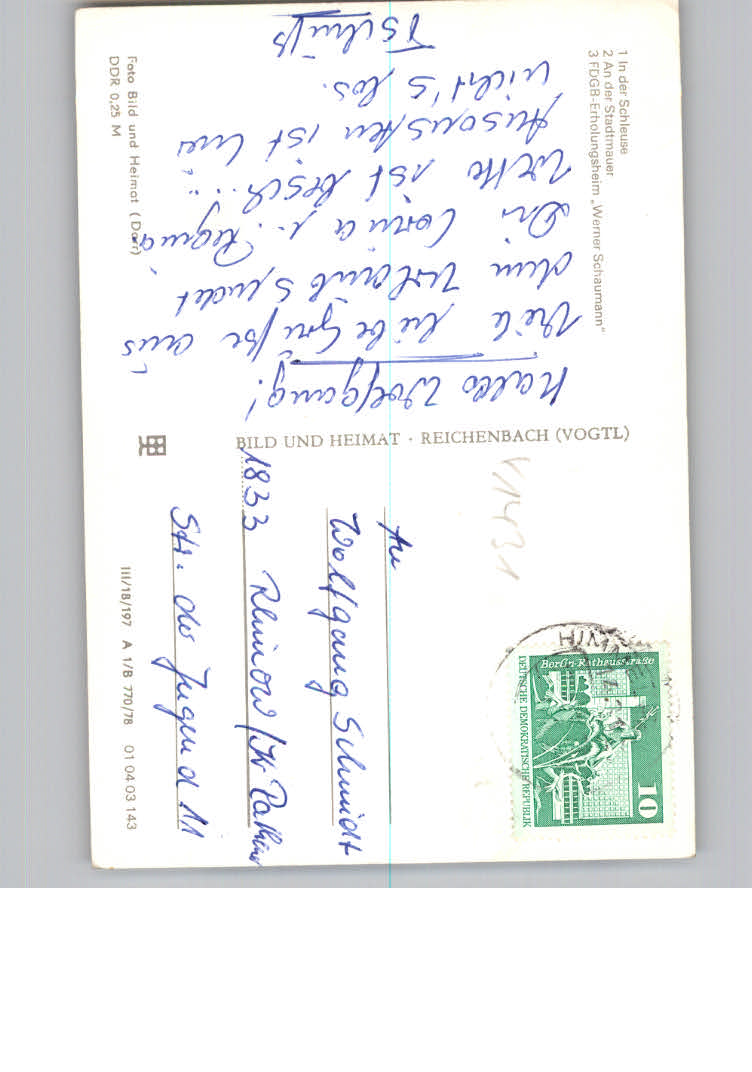 1 In der Schleuse
2 An der Stadtmauer
3 FDGB-Erholungsheim „Werner Schaumann“
Hallo Wolfgang!
Viele liebe Grüße aus
dem Urlaub sendet
Dir Corina u. Regina.
Wetter ist besch...
Ansonsten ist hier
nicht's los.
Tschüß
Foto Bild und Heimat (Dörr)
DDR 0,25 M
BILD UND HEIMAT · REICHENBACH (VOGTL)
10
Berlin-Rathausstraße
DEUTSCHE DEMOKRATISCHE REPUBLIK
V11431
An
Wolfgang Schmidt
1833 Rhinow/Kr Rathenow
Str. der Jugend 11
III/18/197 A 1/B 770/78 01 04 03 143